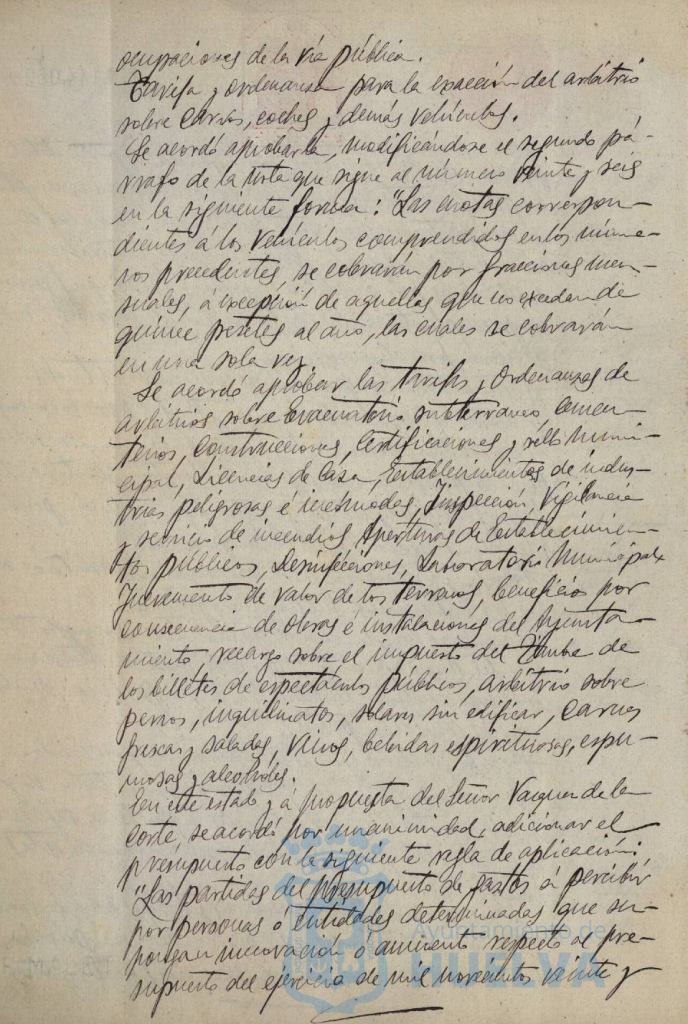 ocupaciones de la vía pública.
Tarifa y ordenanza para la exacción del arbitrio
sobre carros, coches y demás vehículos.
Se acordó aprobarla, modificándose el segundo pá-
rrafo de la nota que sigue al número veinte y seis
en la siguiente forma: "Las cuotas correspon-
dientes á los vehículos comprendidos en los núme-
ros precedentes, se cobrarán por fracciones men-
suales, á excepción de aquellas que no excedan de
quince pesetas al año, las cuales se cobrarán
en una sola vez.
Se acordó aprobar las tarifas y Ordenanzas de
arbitrios sobre Evacuatorio subterraneo, Cemen-
terios, Construcciones, Certificaciones y sello muni-
cipal, Licencias de Caza, Establecimientos de indus-
trias peligrosas é incómodas, Inspección, Vigilancia
y servicio de incendios, Aperturas de Establecimien-
tos públicos, Desinfecciones, Laboratorio Municipal,
Incremento de valor de los terrenos, beneficio por
consecuencia de obras é instalaciones del Ayunta-
miento, recargo sobre el impuesto del Timbre de
los billetes de espectáculos públicos, arbitrio sobre
perros, inquilinatos, solares sin edificar, Carnes
frescas y saladas, Vinos, bebidas espirituosas, espu-
mosas y alcoholes.
En este estado y á propuesta del Señor Vazquez de la
Corte, se acordó por unanimidad, adicionar el
presupuesto con la siguiente regla de aplicación:
"Las partidas del Presupuesto de gastos á percibir
por personas ó entidades determinadas que su-
pongan innovación ó aumento respecto al pre-
supuesto del ejercicio de mil novecientos veinte y
Ayuntamiento de
HUELVA